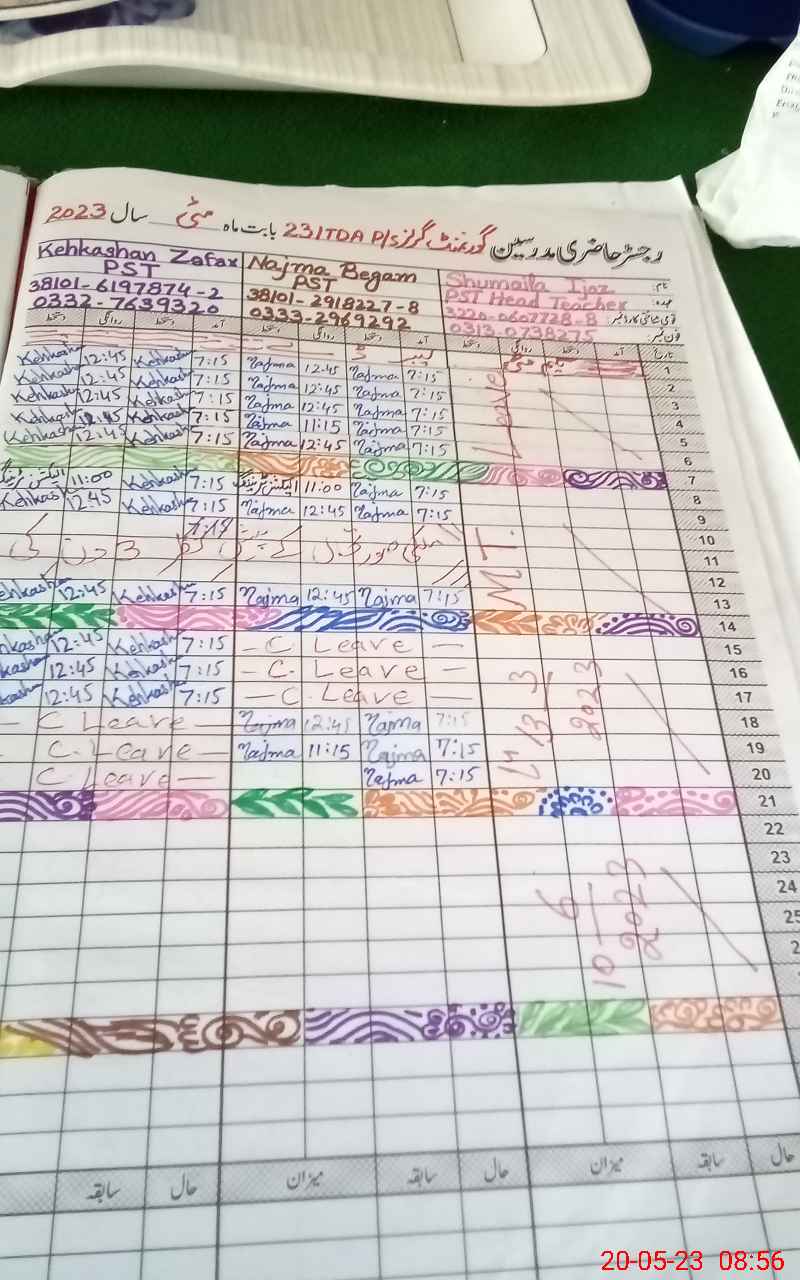 رجسٹر حاضری مدرسین گورنمنٹ گرلز P/S 231TDA بابت ماہ مئی سال 2023
نام: Shumaila Ijaz Najma Begam Kehkashan Zafar
عہدہ: PST Head Teacher PST PST
قومی شناختی کارڈ نمبر: 38101-2918227-8 38101-6197874-2
فون نمبر: 0313-0738275 0333-2969292 0332-7639320
تاریخ آمد دستخط روانگی دستخط آمد دستخط روانگی دستخط دستخط روانگی دستخط
1 یکم مئی
2 7:15 Najma 12:45 Najma 7:15 Kehkasha 12:45 Kehkasha
3 7:15 Najma 12:45 Najma 7:15 Kehkasha 12:45 Kehkasha
4 7:15 Najma 12:45 Najma 7:15 Kehkasha 12:45 Kehkasha
5 7:15 Najma 11:15 Najma 7:15 Kehkasha 12:45 Kehkasha
6 7:15 Najma 12:45 Najma 7:15 Kehkasha 12:45 Kehkasha
7
8 7:15 Najma 11:00 الیکشن ٹریننگ 7:15 Kehkasha 11:00
9 7:15 Najma 12:45 Najma 7:15 Kehkasha 12:45 Kehkash
10
11
12
13 7:15 Najma 12:45 Najma 7:15 Kehkasha 12:45 ehkasha
14
15 — C Leave — 7:15 Kehkasha 12:45 hkasha
16 — C. Leave — 7:15 Kehkasha 12:45 kasha
17 — C. Leave — 7:15 Kehkasha 12:45 kasha
18 7:15 Najma 12:45 Najma — C Leave —
19 7:15 Najma 11:15 Najma — C. Leave —
20 7:15 Najma C Leave —
21
22
23
24
25
2
M T. Leave
14/3 — 3
2023
10 — 6
2023
حال سابقہ میزان حال سابقہ میزان حال سابقہ
20-05-23 08:56